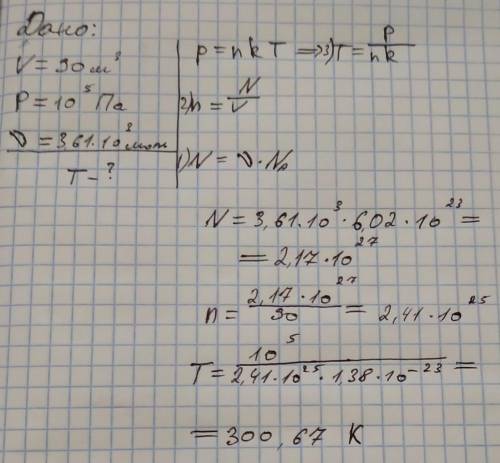 Дано:
V = 90 м³
P = 10⁵ Па
ν = 3,61·10³ моль
T - ?
p = nkT ⟹ 3) T = p/nk
2) n = N/V
1) N = ν·Nₐ
N = 3,61·10³·6,02·10²³ =
= 2,17·10²⁷
n = 2,17·10²⁷/90 = 2,41·10²⁵
T = 10⁵/2,41·10²⁵·1,38·10⁻²³ =
= 300,67 K